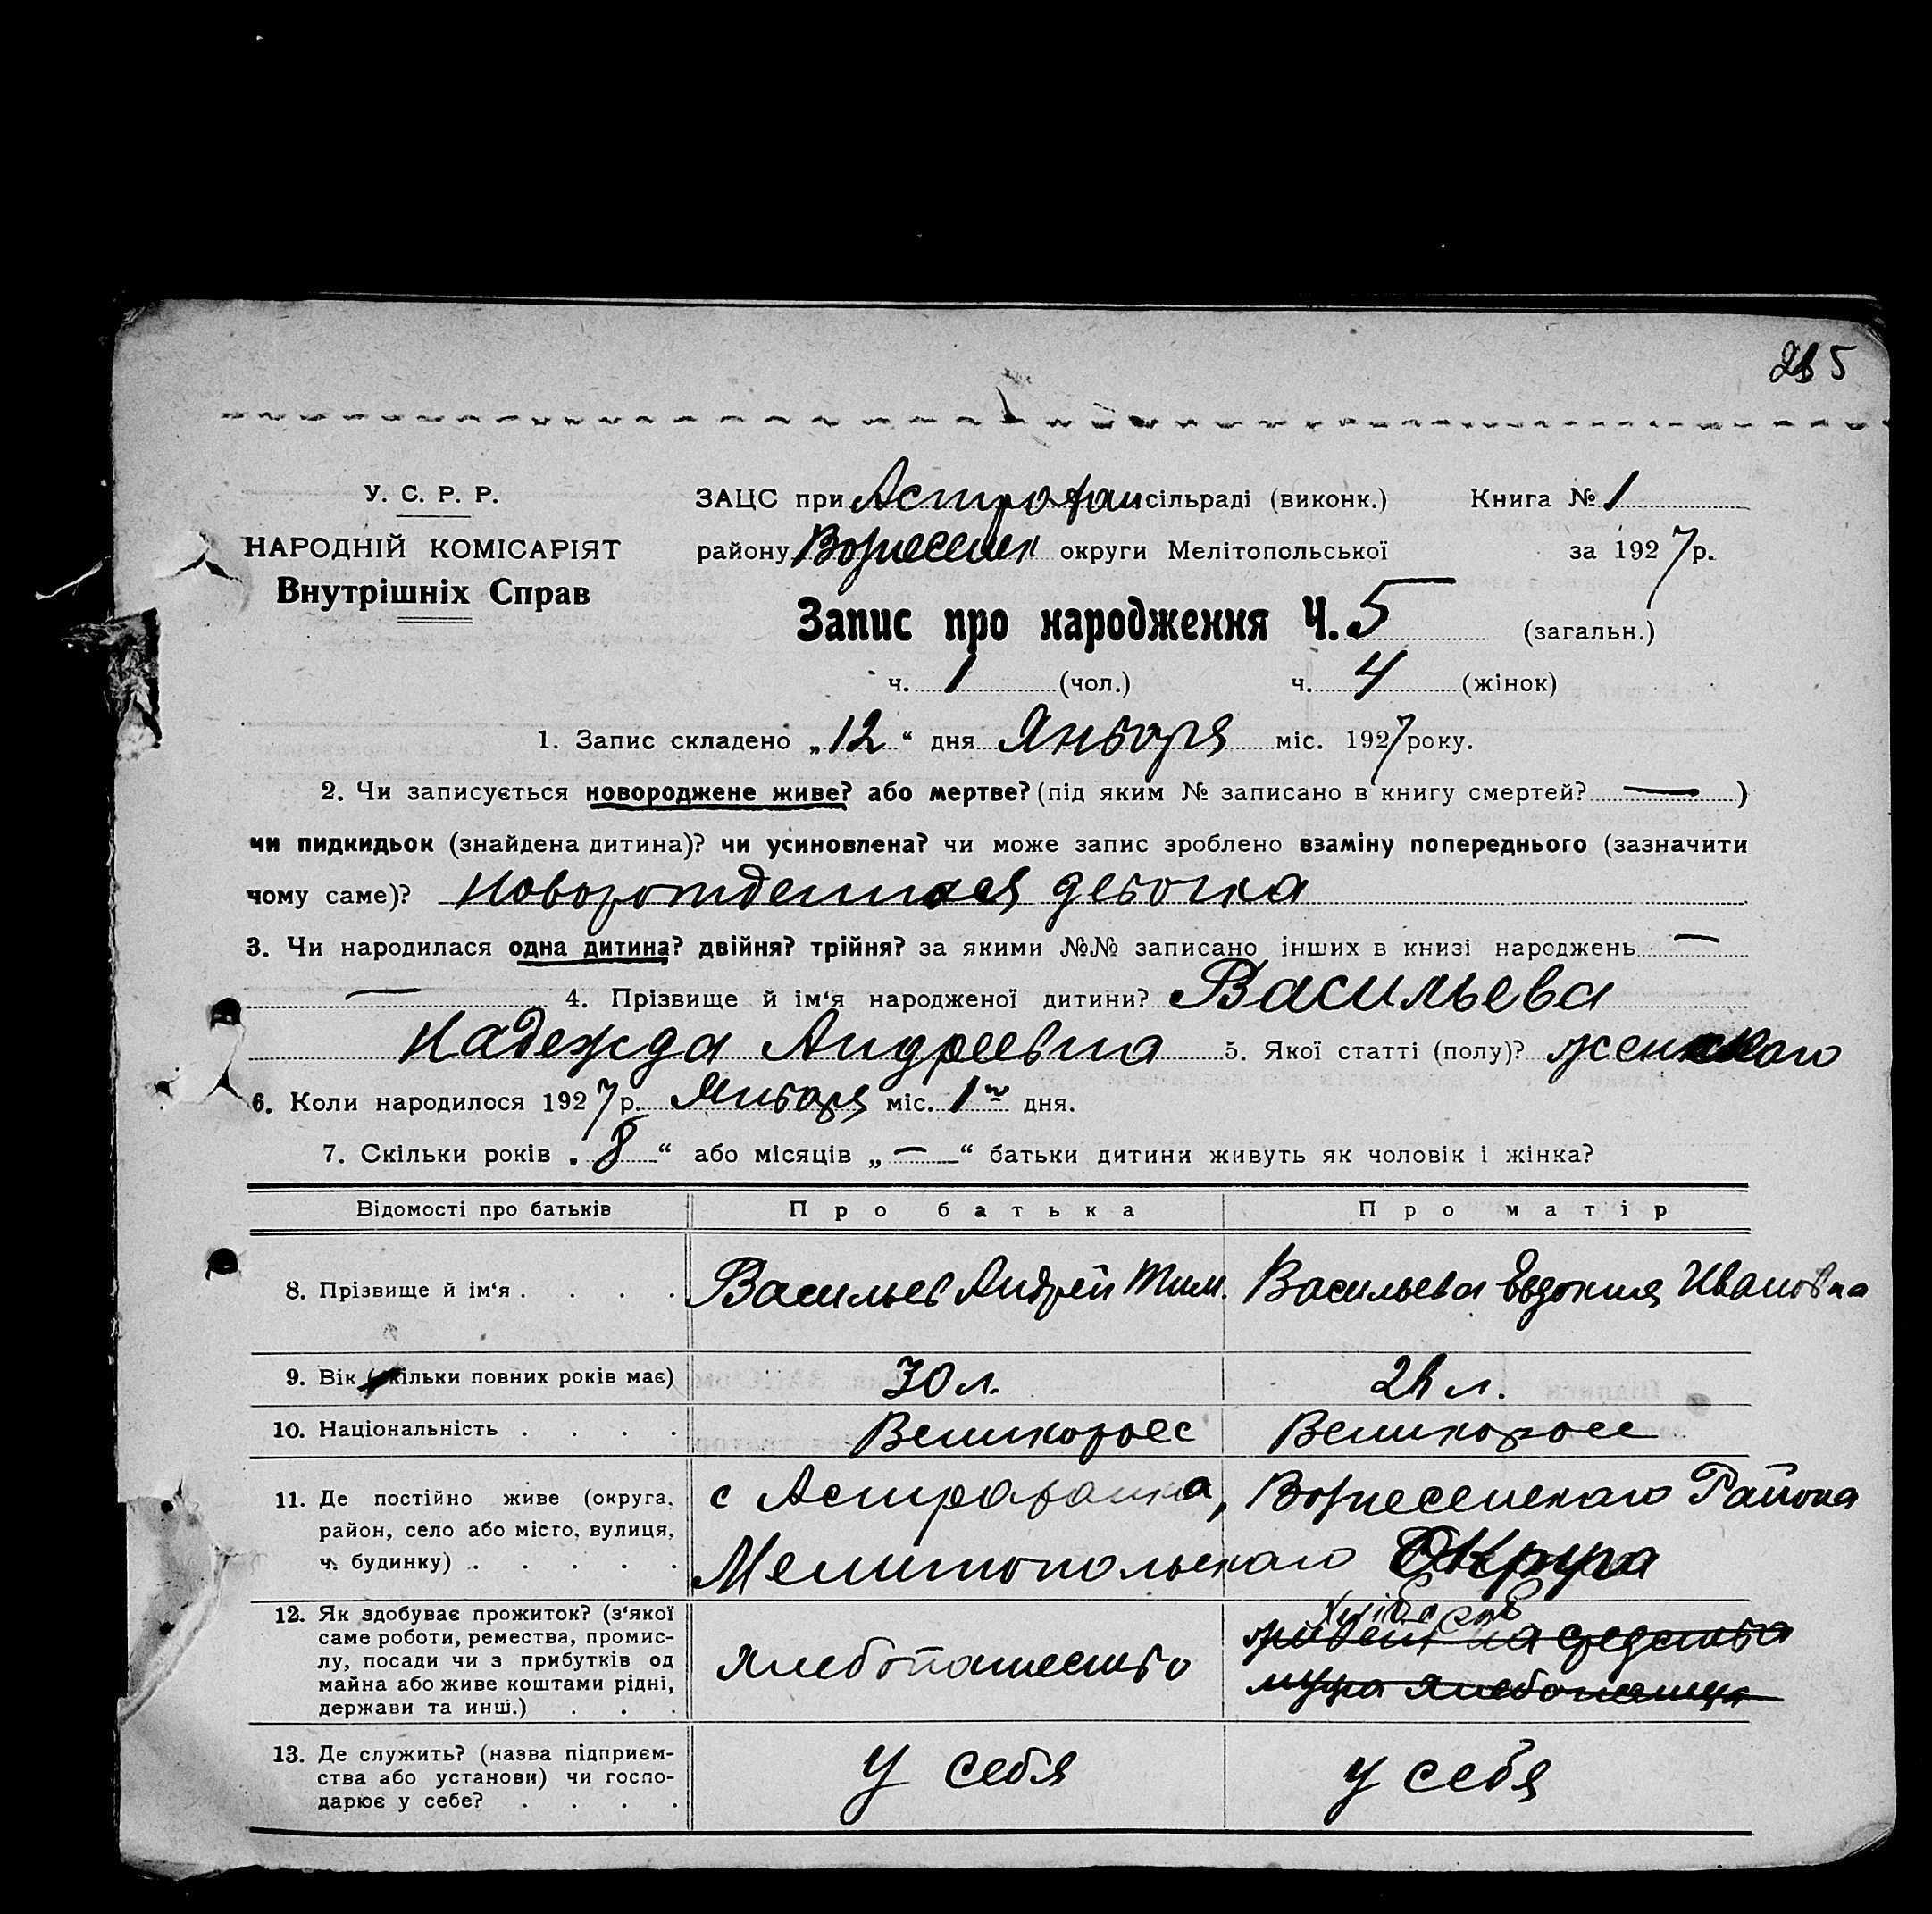 5
У. С. Р. Р.
НАРОДНІЙ КОМІСАРІЯТ
Внутрішніх Справ
ЗАЦС при Астрахан сільраді (виконк.) Книга № 1
району Вознесенск округи Мелітопольської за 1927 р.
Запис про народження Ч. 5 (загальн.)
ч. 1 (чол.) ч. 4 (жінок)
1. Запис складено „12“ дня Января міс. 1927 року.
2. Чи записується новороджене живе? або мертве? (під яким № записано в книгу смертей? — )
чи пидкидьок (знайдена дитина)? чи усиновлена? чи може запис зроблено взаміну попереднього (зазначити
чому саме)? Новорожденная девочка
3. Чи народилася одна дитина? двійня? трійня? за якими №№ записано інших в книзі народжень —
— 4. Прізвище й ім‘я народженої дитини? Васильева
Надежда Андреевна 5. Якої статті (полу)? женскаго
6. Коли народилося 1927 р. Января міс. 1го дня.
7. Скільки років „8“ або місяців „—“ батьки дитини живуть як чоловік і жінка?
Відомості про батьків Про батька Про матір
8. Прізвище й ім‘я . . . . Васильев Андрей Тим. Васильева Евдокия Ивановна
9. Вік (скільки повних років має) 30 л. л.
10. Національність . . . . Великоросс Великоросс
11. Де постійно живе (округа, с Астраханка, Вознесенскаго Района
район, село або місто, вулиця,
ч. будинку) . . . . . Мелитопольскаго Округа
12. Як здобуває прожиток? (з‘якої
саме роботи, ремества, промис-
лу, посади чи з прибутків од
майна або живе коштами рідні,
держави та инш.) . . . хлебопашество живет на средства
мужа хлебопашца
13. Де служить? (назва підприєм-
ства або установи) чи госпо-
дарює у себе? . . . . у себя у себя